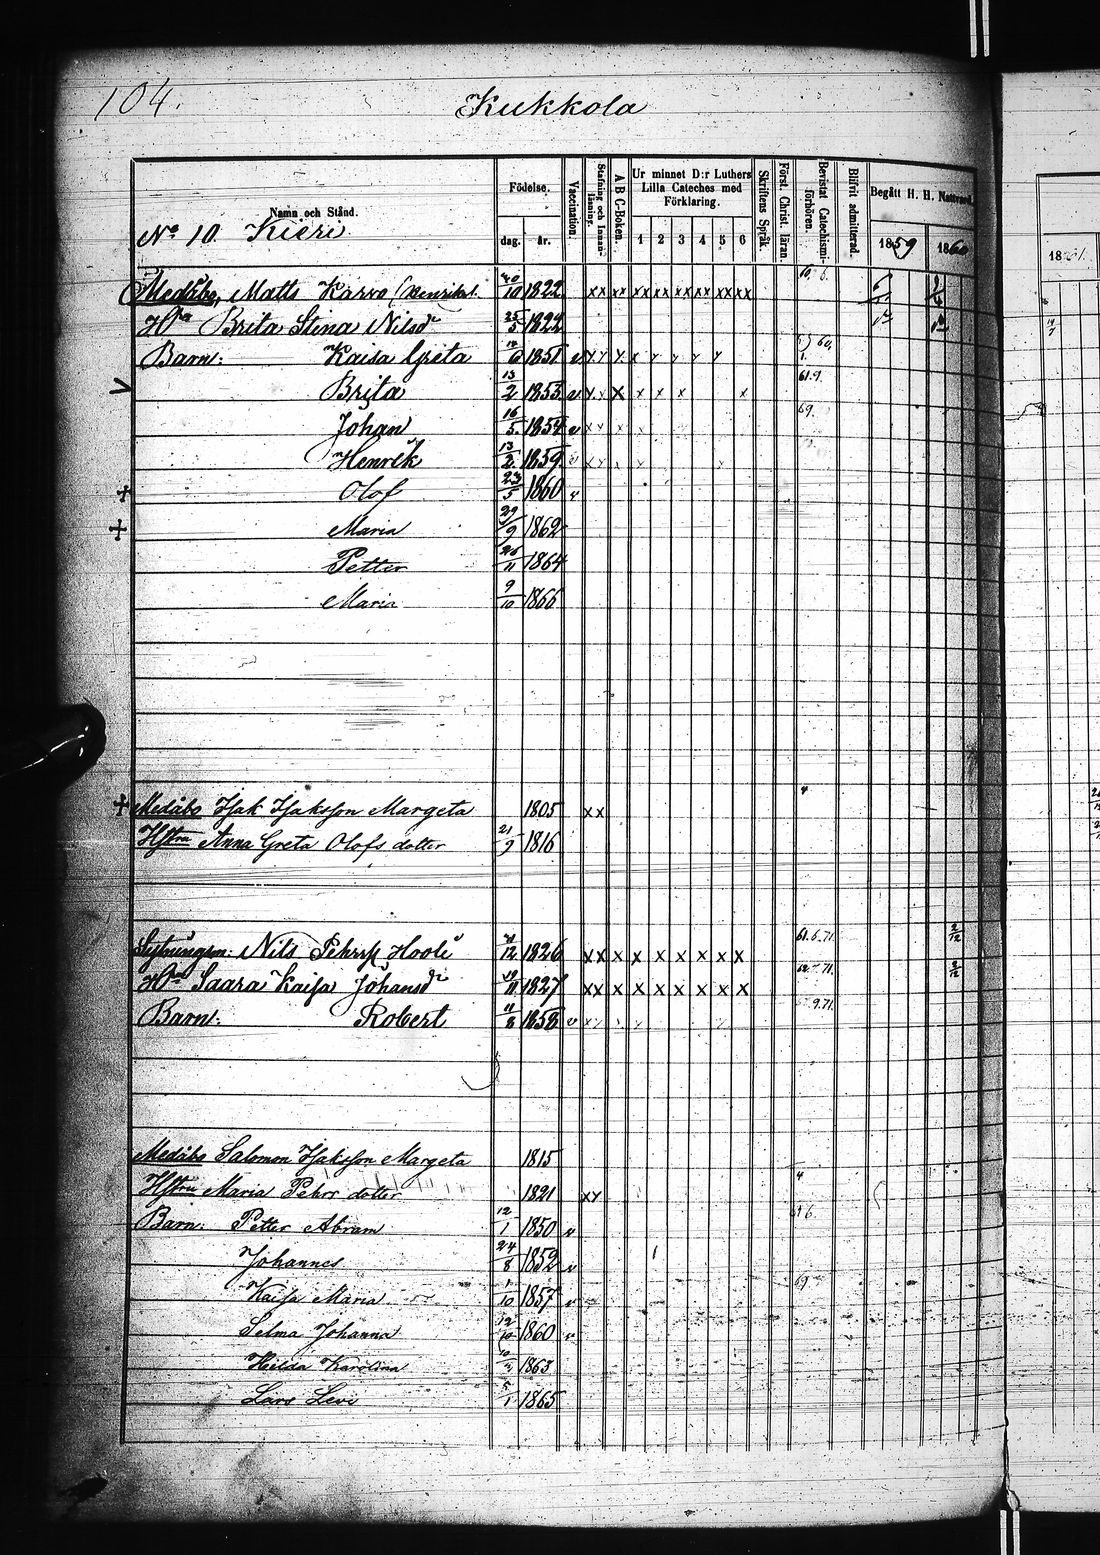 104.
Kukkola
Namn och Stånd.
Födelse.
dag. år.
Vaccination.
Stafning och Innanläsning.
A B C-Boken.
Ur minnet D:r Luthers Lilla Cateches med Förklaring.
1 2 3 4 5 6
Skriftens Språk.
Först. Christ. läran.
Bevistat Catechismiförhören.
Blifvit admitterad.
Begått H. H. Nattvard.
1859 1860
1861.
No 10. Kieri
Medåbo, Matts Karvo 1822 xx xx xx xx xx xx xx xx
Hru Brita Stina Nilsdr 25/5 1822
Barn: Kaisa Greta 1851
Brita 13/2 1853 61.9.
Johan 16/5 1854 v 69.
Henrik 13/2 1859
Olof 23/5 1860 v
Maria 29/9 1862
Petter 26/11 1864
Maria 9/10 1866
Medåbo Isak Isaksson Margeta 1805 x x
Hstru Anna Greta Olofs dotter 21/9 1816
Nils Pehrss 1826 x x x x x x x x x 61.6.71. 2/12
Hru Saara Kaisa Johansdr 1827 x x x x x x x x x 2/12
Barn: Robert 11/8 1858 v
Medåbo Salomon Isaksson Margeta 1815
Hstru Maria Pehrs dotter 1821
Barn: Petter Abram 12/1 1850 v
Johannes 24/8 1852 v
Kaisa Maria 1/10 1857 v 69
Selma Johanna 12/10 1860 v
Hilda Karolina 1863
Lars Levi 5/1 1865